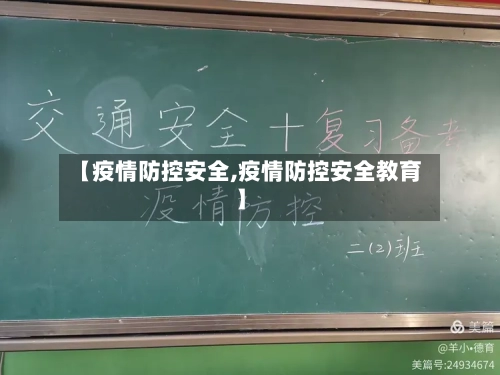 交通安全十复习备考
【疫情防控安全,疫情防控安全教育
】
疫情防控
二(2)班
美篇
@羊小•德育
美篇号:24934674